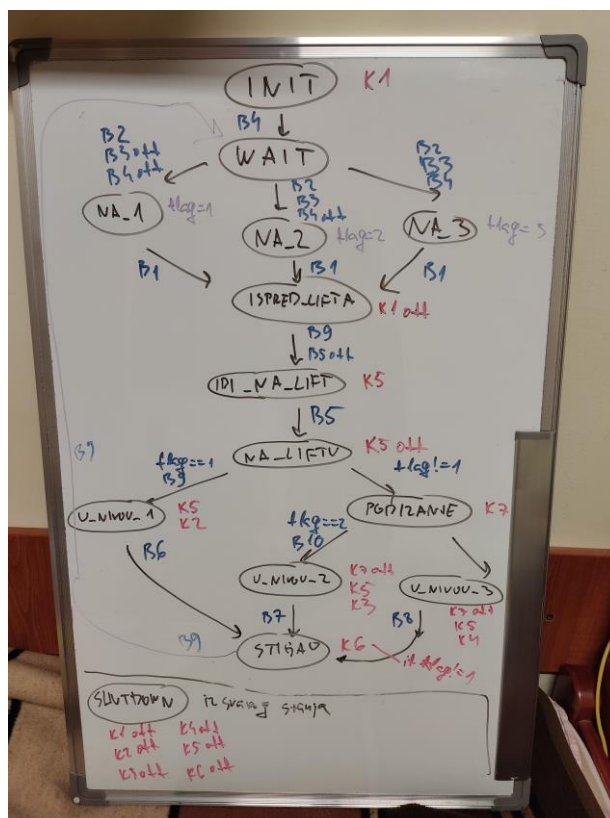 INIT K1
B4
WAIT
B2
B3 off
B4 off
B2
B3
B4 off
B2
B3
B4
NA_1 flag=1
NA_2 flag=2
NA_3 flag=3
B1 B1 B1
ISPRED_LIFTA K1 off
B9
B5 off
IDI_NA_LIFT K5
B5
NA_LIFTU K5 off
flag==1
B9
flag!=1
U_NIVOU_1 K5
K2
PODIZANJE K7
flag==2
B10
B9
B6
U_NIVOU_2 K7 off
K5
K3
U_NIVOU_3
off
K5
K4
B7 B8
B9
STIGAO K6 if flag!=1
SHUTDOWN iz svakog stanja
K1 off K4 off
K2 off K5 off
K3 off K6 off